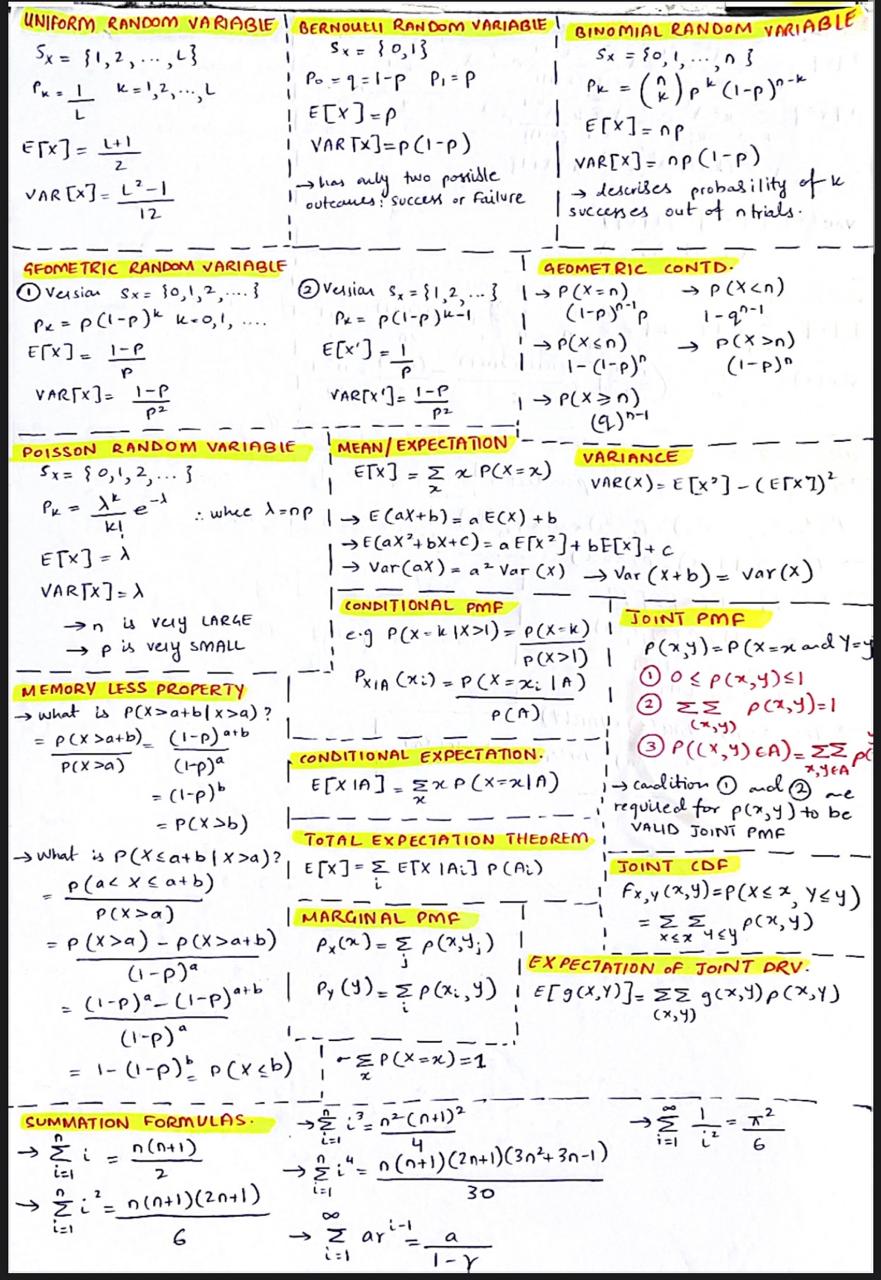 UNIFORM RANDOM VARIABLE
Sx = {1,2, ..., L}
Pk = 1/L   k=1,2,...,L
E[X] = (L+1)/2
VAR[X] = (L²-1)/12
BERNOULLI RANDOM VARIABLE
Sx = {0,1}
P₀ = q = 1-p   P₁ = p
E[X] = p
VAR[X] = p(1-p)
→ has only two possible
outcomes: Success or Failure
BINOMIAL RANDOM VARIABLE
Sx = {0,1,...,n}
Pk = (n k) p^k (1-p)^(n-k)
E[X] = np
VAR[X] = np(1-p)
→ describes probability of k
successes out of n trials.
GEOMETRIC RANDOM VARIABLE
① Version Sx = {0,1,2,....}
Pk = p(1-p)^k k=0,1,....
E[X] = (1-p)/p
VAR[X] = (1-p)/p²
② Version Sx = {1,2,...}
Pk = p(1-p)^(k-1)
E[X'] = 1/p
VAR[X'] = (1-p)/p²
GEOMETRIC CONTD.
→ P(X=n)   → P(X<n)
(1-p)^(n-1) p   1-q^(n-1)
→ P(X≤n)   → P(X>n)
1-(1-p)^n   (1-p)^n
→ P(X≥n)
(q)^(n-1)
POISSON RANDOM VARIABLE
Sx = {0,1,2,...}
Pk = λ^k/k! e^(-λ)   ∴ where λ=np
E[X] = λ
VAR[X] = λ
→ n is very LARGE
→ p is very SMALL
MEAN/EXPECTATION
E[X] = Σx x P(X=x)
→ E(aX+b) = a E(X) + b
→ E(aX²+bX+c) = a E[X²] + bE[X] + c
→ Var(aX) = a² Var(X)   → Var(X+b) = Var(X)
VARIANCE
VAR(X) = E[X²] - (E[X])²
CONDITIONAL PMF
e.g P(X=k|X>1) = P(X=k)/P(X>1)
PX|A(xi) = P(X=xi|A)/P(A)
JOINT PMF
P(x,y) = P(X=x and Y=y
① 0 ≤ p(x,y) ≤ 1
② ΣΣ(x,y) p(x,y) = 1
③ P((x,y)∈A) = ΣΣx,y∈A p(
→ condition ① and ② are
required for p(x,y) to be
VALID JOINT PMF
MEMORY LESS PROPERTY
→ what is P(X>a+b|X>a)?
= P(X>a+b)/P(X>a) = (1-p)^(a+b)/(1-p)^a
= (1-p)^b
= P(X>b)
→ What is P(X≤a+b|X>a)?
= P(a<X≤a+b)/P(X>a)
= P(X>a) - P(X>a+b)/(1-p)^a
= (1-p)^a - (1-p)^(a+b)/(1-p)^a
= 1-(1-p)^b = P(X≤b)
CONDITIONAL EXPECTATION.
E[X|A] = Σx x P(X=x|A)
TOTAL EXPECTATION THEOREM
E[X] = Σi E[X|Ai] P(Ai)
MARGINAL PMF
Px(x) = Σj p(x,yj)
Py(y) = Σi p(xi,y)
Σx P(X=x) = 1
JOINT CDF
Fx,y(x,y) = P(X≤x, Y≤y)
= Σx≤x Σy≤y p(x,y)
EXPECTATION OF JOINT DRV.
E[g(X,Y)] = ΣΣ(x,y) g(x,y) p(x,y)
SUMMATION FORMULAS.
→ Σ(i=1 to n) i = n(n+1)/2
→ Σ(i=1 to n) i² = n(n+1)(2n+1)/6
→ Σ(i=1 to n) i³ = n²(n+1)²/4
→ Σ(i=1 to n) i⁴ = n(n+1)(2n+1)(3n²+3n-1)/30
→ Σ(i=1 to ∞) ar^(i-1) = a/(1-r)
→ Σ(i=1 to ∞) 1/i² = π²/6